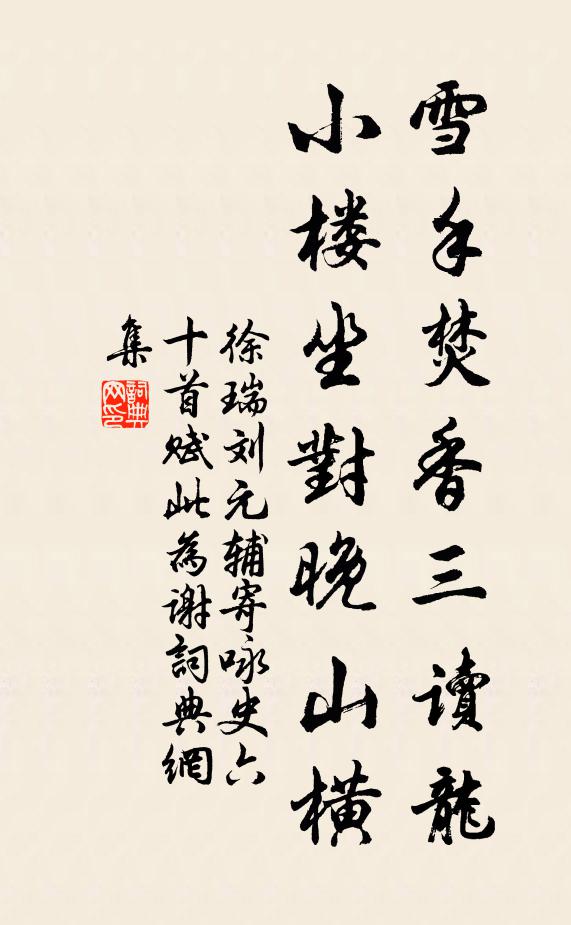 雪手焚香三讀龍
小楼坐對晚山横
徐瑞刘元辅寄咏史六
十首赋此為谢詞典網
集
詞典
网印